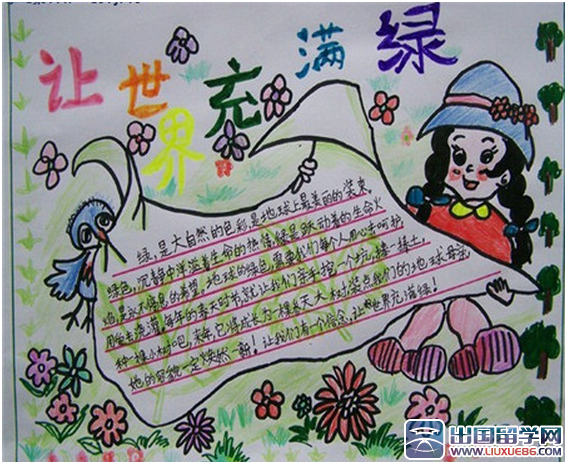 让世界充满绿
绿,是大自然的色彩,是地球上最美丽的装束,
绿色,沉静中洋溢着生命的热情,绿是跃动着的生命火
焰,是永不停息的希望。地球的绿色,需要我们每个人用心去呵护,
用的去浇灌,每年的春天时节,就让我们亲手挖一个坑,捧一抔土,
种一棵小树吧,来年,它将成长为一棵参天大树,装点我们的地球母亲,
她的容貌一定焕然一新!让我们有一个信念,让世界充满绿!
出国留学网
WWW.LIUXUE86.COM